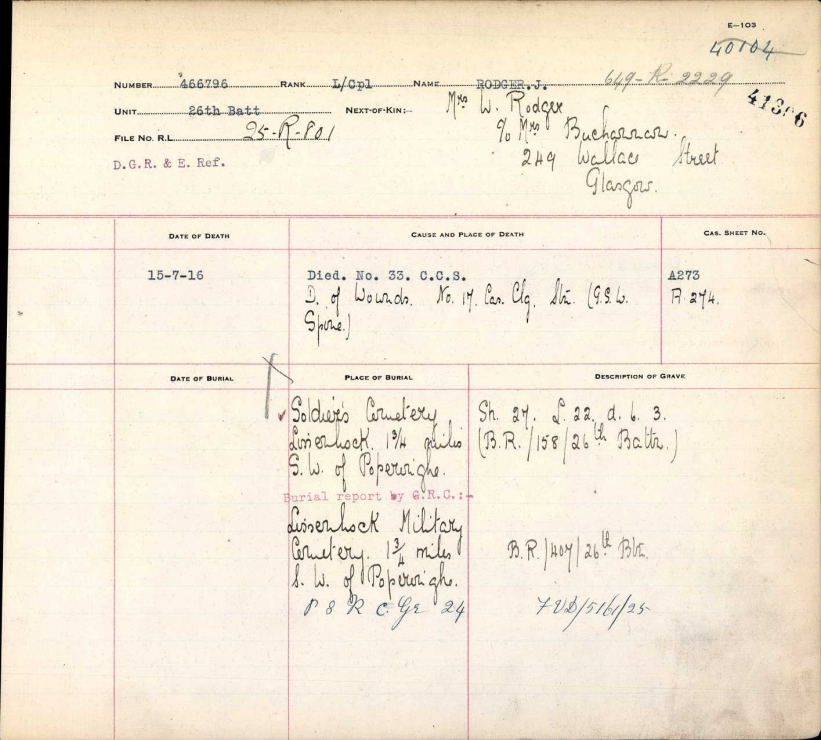 E-103
40104
NUMBER 466796 RANK L/Cpl NAME RODGER.J. 649-R-2229
UNIT 26th Batt NEXT-OF-KIN:- Mrs W. Rodger
% Mrs Buchannan.
FILE NO. R.L. 25-R-801
249 Wallace Street
D.G.R. & E. Ref.
Glasgow.
DATE OF DEATH CAUSE AND PLACE OF DEATH CAS. SHEET NO.
15-7-16 Died. No. 33. C.C.S. A273
D. of Wounds. No. 17. Cas. Clg. Stn. (G.S.W. R. 274.
Spine.)
DATE OF BURIAL PLACE OF BURIAL DESCRIPTION OF GRAVE
Soldier's Cemetery Sh. 27. L. 22. d. 6. 3.
Lissenhock. 1 3/4 miles (B.R./158/26th Battn.)
S. W. of Poperinghe.
Burial report by G.R.C.:-
Lissenhock Military
Cemetery. 1 3/4 miles B.R./407/26th Btn.
S. W. of Poperinghe.
24